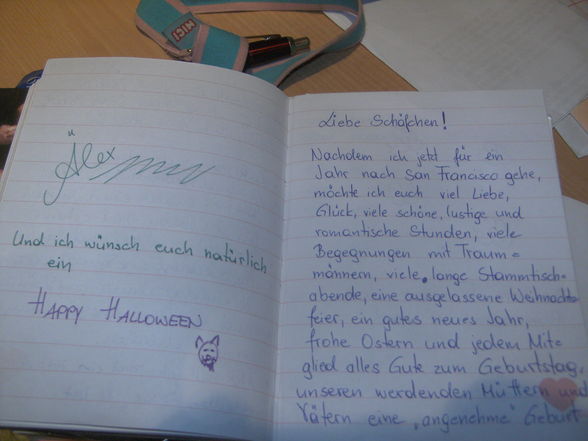 NICI
Alex
Und ich wünsch euch natürlich
ein
HAPPY HALLOWEEN
Liebe Schäfchen!
Nachdem ich jetzt für ein
Jahr nach San Francisco gehe,
möchte ich euch viel Liebe,
Glück, viele schöne, lustige und
romantische Stunden, viele
Begegnungen mit Traum=
männern, viele, lange Stammtisch-
abende, eine ausgelassene Weihnachts-
feier, ein gutes neues Jahr,
frohe Ostern und jedem Mit-
glied alles Gute zum Geburtstag,
unseren werdenden Müttern und
Vätern eine „angenehme" Geburt